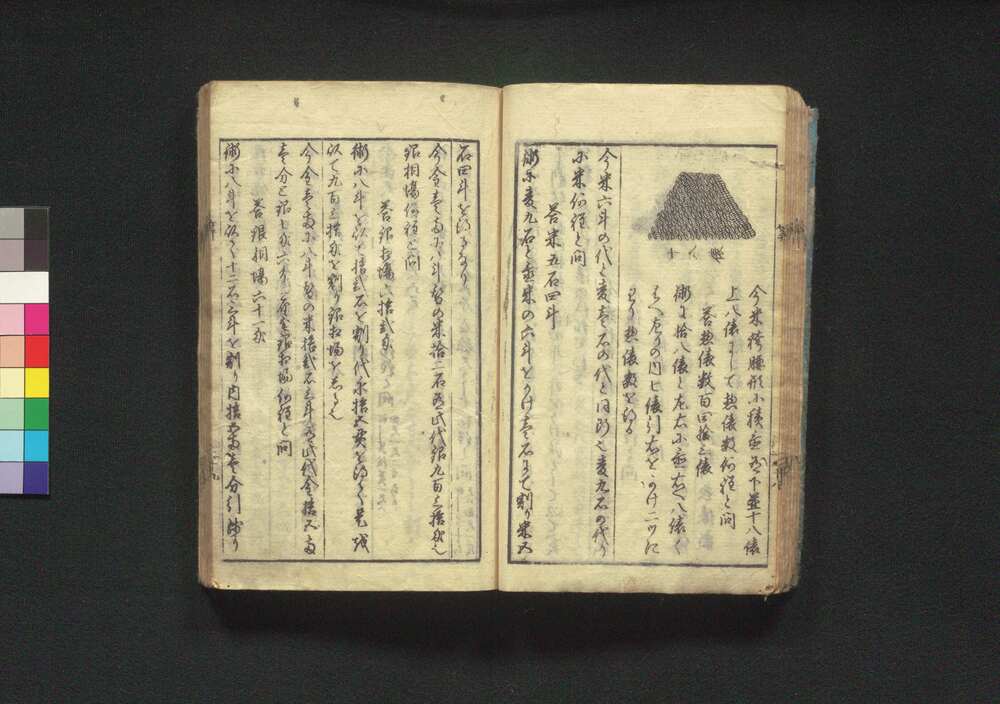 十八俵
今米積腰形小積重有下並十八俵
上八俵にして惣俵数何程と問
答惣俵数百四拾三俵
術に拾八俵と左右に並右へ八俵く
はへ左りの内七俵引右をかけ二つに
わり惣俵数を知る
今米六斗の代と麦壱石の代と同断也麦九石の代り
に米何程と問
答米五石四斗
術に麦九石と並米の六斗をかけ壱石にて割り米五
石四斗を得るなり
今金壱両に八斗替の米拾二石有此代銀九百三拾匁也
銀相場何程と問
答銀相場六拾弐匁
術に八斗を以て拾弐石を割り代金拾五両を得る是を
以て九百三拾匁を割り銀相場をしる也
今金壱両に八斗替の米拾弐石三斗有此代金拾五両
壱分と銀
相場何程と問
答銀相場六十一匁
術に八斗を以て十二石三斗を割り内拾五両壱分引残り